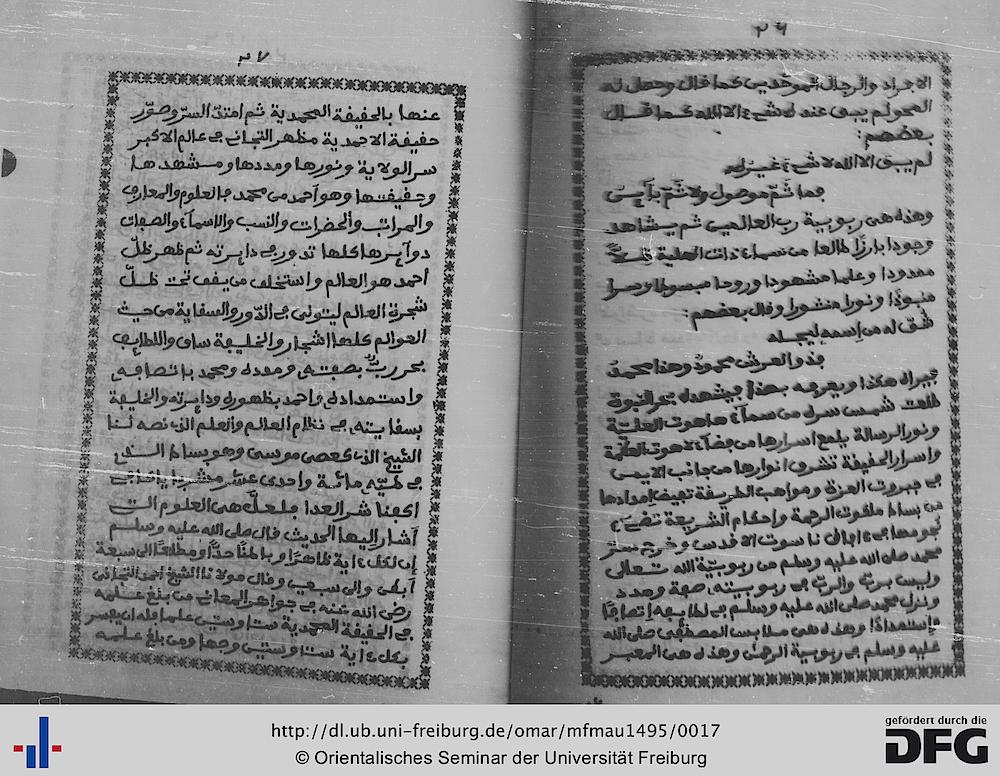 ٢٦
الافراد والرجال الموحدين كما قال وحصل له
المحو لم يبق عنده شيء الا الله كما قال
بعضهم:
لم يبق الا الله لا شيء غيره
فما ثم موصول ولا ثم باين
وهذه هي ربوبية رب العالمين ثم يشاهد
وجودا بارزا طالعا من سماء ذات العلية ظلا
ممدودا وعلما مشهودا وروحا مبسوطا وسرا
ونورا منشورا وقال بعضهم:
شق له من اسمه ليجله
فذو العرش محمود وهذا محمد
فيراه هكذا ويعرفه بهذا ويشهده بحر النبوة
طلعت شمس سره من سماء هاهوت العلية
ونور الرسالة يلمع اسرارها من فضاء لاهوت
واسرار الحقيقة تشرق انوارها من جانب الايمن
في جبروت العزة ومواهب الطريقة تفيض امدادها
من بساط ملكوت الرحمة واحكام الشريعة تضيء
نجومها في ءافاق ناسوت الاقدس وخرج ستر
محمد صلى الله عليه وسلم من ربوبية الله تعالى
وليس برب والرب في ربوبيته صفة ومدد
ونزل محمد صلى الله عليه وسلم في لطايفه اتصافا
واستمدادا وهذه هي ملابس المصطفى صلى الله
عليه وسلم في ربوبية الرحمن وهذه هي المعبر
٢٧
عنها بالحقيقة المحمدية ثم امتد السر وصور
حقيقة الاحمدية مظهر التجاني في عالم الاكبر
سر الولاية ونورها ومددها ومشهدها
وحقيقتها وهو احمد من محمد فالعلوم والمعارف
والمراتب والحضرات والنسب والاسماء والصفات
دوايرها كلها تدور في دايرته ثم ظهر ظل
احمد هو العالم واستخلف من يقف تحت ظل
شجرة العالم ليتولى في الدور والسقاية من حيث
العوالم كلها اشجار والخليفة ساق واللطايف
بحر رب بصفته ومدده ومحمد باتصافه
واستمداده واحمد بظهوره ودايرته والخليفة
بسقايته في نظام العالم والعلم الذي نصه لنا
الشيخ الذي كعصى موسى وهو بساط الذي
في طيه مائة واحدى عشر مشربا يا اخا في
اكبنا شر العدا فلعل هي العلوم التي
أشار اليها الحديث قال صلى الله عليه وسلم
إن لكل ءاية ظاهرا وباطنا وحدا ومطلعا الى سبعة
أبطن والى سبعين وقال مولانا الشيخ احمد التجاني
رضي الله عنه في جواهر المعاني من بلغ علمه
في الحقيقة المحمدية ستا وستين علما فله ان يفسر
بكل ءاية ستا وستين وجها ومن بلغ علمه
http://dl.ub.uni-freiburg.de/omar/mfmau1495/0017
© Orientalisches Seminar der Universität Freiburg
gefördert durch die
DFG